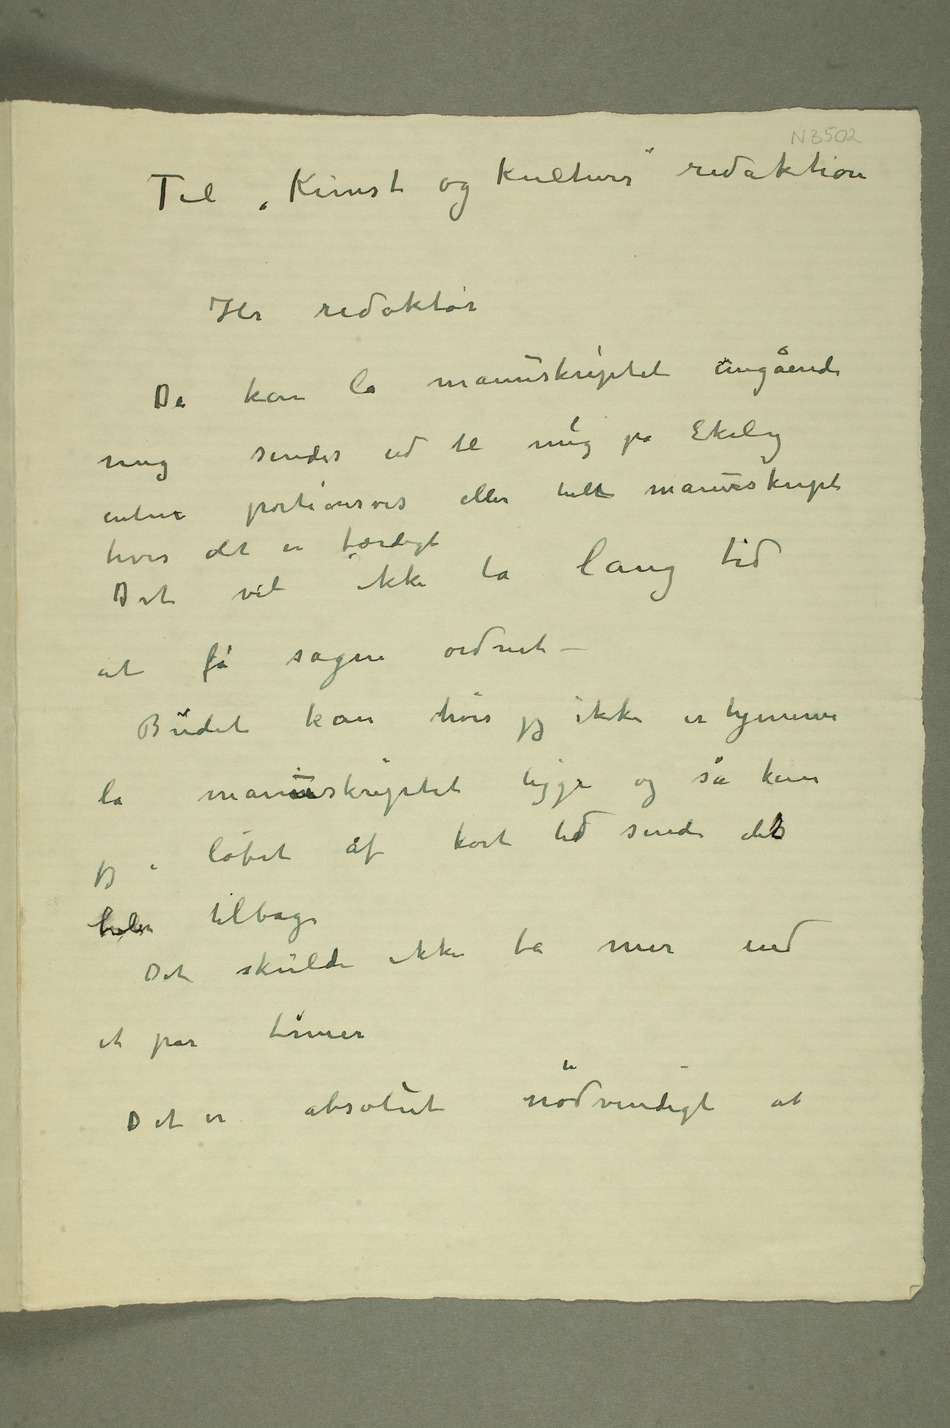 N3502
Til „Kunst og kulturs“ redaktion
Hr redaktør
De kan la manuskriptet angående
mig sendes ud til mig på Ekely
enten portionsvis eller helt manuskript
hvis det er færdigt
Det vil ikke ta lang tid
at få sagen ordnet –
Budet kan hvis jeg ikke er hjemme
la manuskriptet ligge og så kan
jeg i løbet af kort tid sende det
tilbage
Det skulde ikke ta mer end
et par timer
Det er absolut nødvendigt at